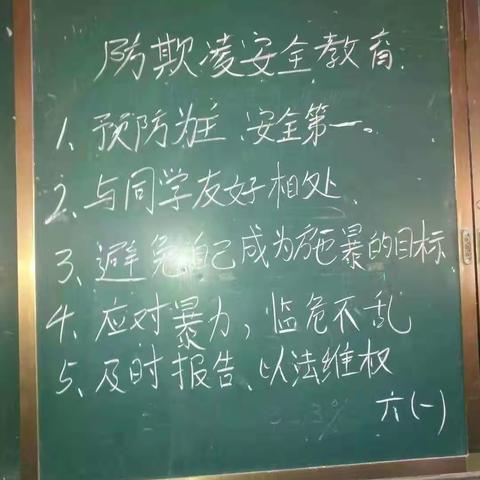 防欺凌安全教育
1、预防为主、安全第一。
2、与同学友好相处、
3、避免自己成为施暴的目标
4、应对暴力，监危不乱
5、及时报告、以法维权
六(一)